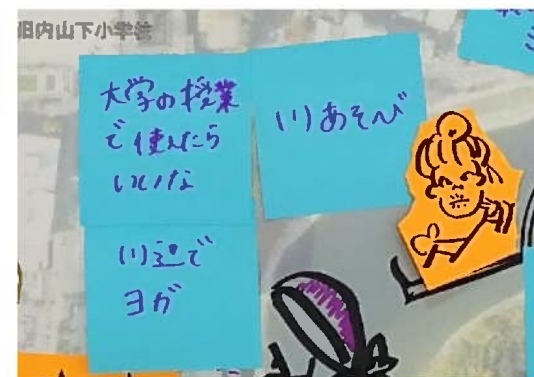 旧内山下小学校
大学の授業
で使えたら
いいな
川あそび
川辺で
ヨガ